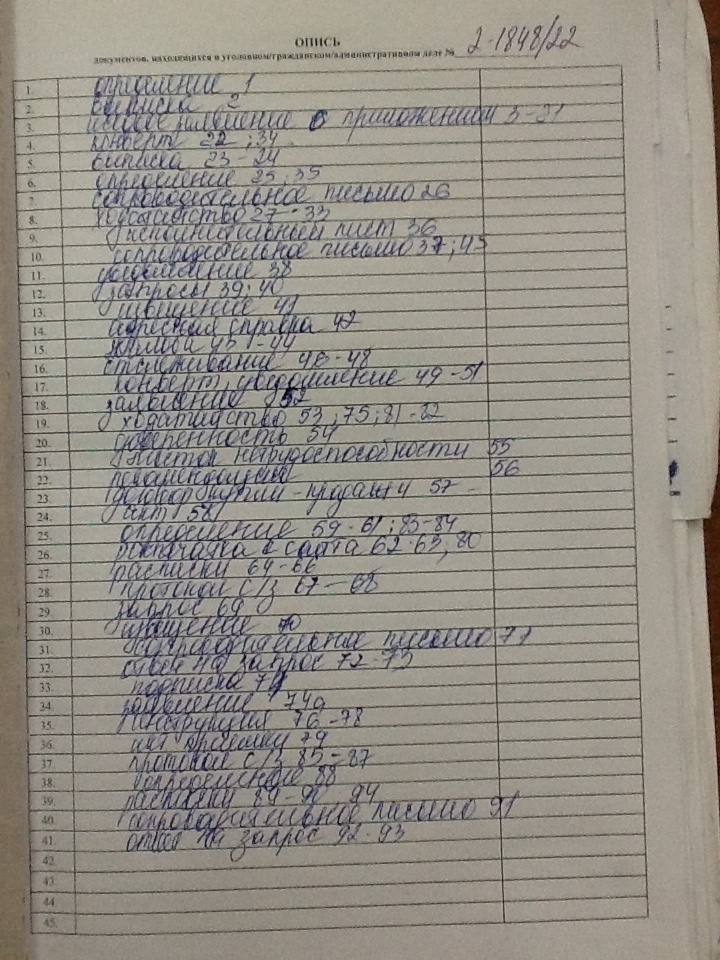 ОПИСЬ
документов, находящихся в уголовном/гражданском/административном деле № 2-1848/22
1. определение 1
2. выписка 2
3. исковое заявление с приложением 3-21
4. конверт 22; 34
5. выписка 23-24
6. определение 25; 35
7. сопроводительное письмо 26
8. ходатайство 27-33
9. исполнительный лист 36
10. сопроводительное письмо 37; 45
11. уведомление 38
12. запросы 39; 40
13. извещение 41
14. адресная справка 42
15. жалоба 43-44
16. отслеживание 46-48
17. конверт, уведомление 49-51
18. заявление 52
19. ходатайство 53; 75; 81-82
20. доверенность 54
21. листок нетрудоспособности 55
22. 56
23. договор купли-продажи 57
24. акт 58
25. определение 59-61; 83-84
26. распечатка с сайта 62-63, 80
27. расписки 64-66
28. протокол с/з 67-68
29. запрос 69
30. извещение 70
31. сопроводительное письмо 71
32. ответ на запрос 72-73
33. подписка 74
34. заявление 74а
35. инструкция 76-78
36. акт приемки 79
37. протокол с/з 85-87
38. определение 88
39. расписки 89-90 94
40. сопроводительное письмо 91
41. ответ на запрос 92-93
42.
43.
44
45.